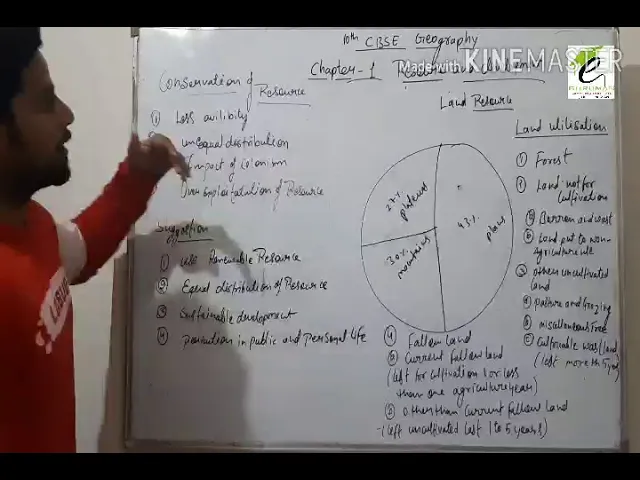 10th CBSE Geography
Made with KINEMASTER
Chapter-1
Land Resource
Conservation of Resource
① Less avilibity
unequal distribution
Impact of colonism
Over exploitation of Resource
Suggestion
① use Renewable Resource
② Equal distribution of Resource
③ Sustainable development
④ in public and personal life
27% plateaus
43% plains
30% mountains
④ Fallow Land
ⓐ Current fallow land
(left for cultivation 1 or less
than one agriculture year)
ⓑ other than current fallow land
(left uncultivated last 1 to 5 years)
Land utilisation
① Forest
Land not for cultivation
ⓐ Barren and wast
ⓑ Land put to non-agriculture
③ others uncultivated land
ⓐ pasture and Grazing
ⓑ miscellaneous
(left more th 5 y